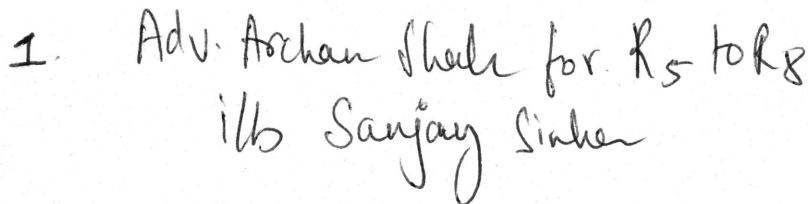 1. Adv. Archan Shah for R5 to R8
i/b Sanjay Sinha